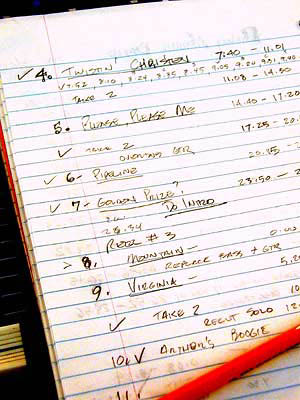 ✓ 4. TWISTIN' CHRISTEN 7:40 - 11:01
√ 7:52, 8:10, 8:24, 8:35, 8:45, 9:05, 9:20, 9:31, 9:40
TAKE 2 11:08 - 14:30
5. PLEASE, PLEASE ME 14:40 - 17:20
✓ TAKE 2 17:25 - 20
OVERDUB GTR
✓ 6 - PIPELINE 20:25 - 2
✓ 7 - GOLDEN PRIZE? 23:50 - 2
DO INTRO
26:34
REEL # 3
> 8. MOUNTAIN - 0:00
REFERENCE BASS + GTR
9. VIRGINIA - 5:20
✓ TAKE 2 10
RECUT SOLO 12:
10. ✓ ARTHUR'S BOOGIE
11.